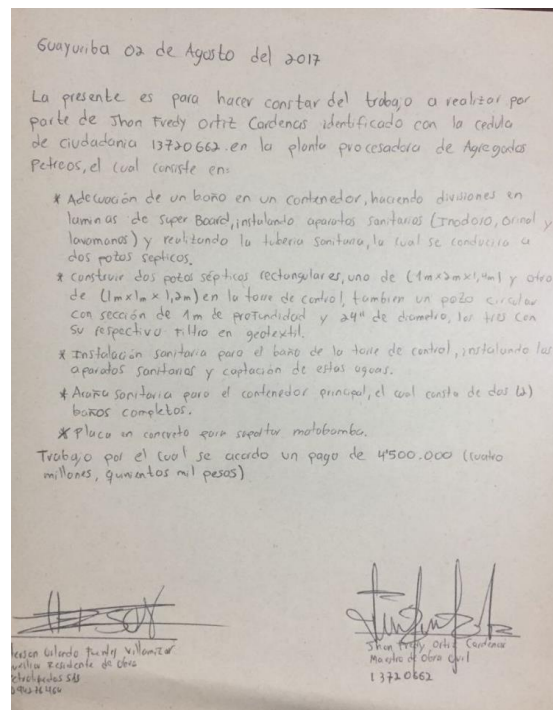 Guayuriba 02 de Agosto del 2017
La presente es para hacer constar del trabajo a realizar por
parte de Jhon Fredy Ortiz Cardenas identificado con la cedula
de ciudadania 13720662 en la planta procesadora de Agregados
Petreos, el cual consiste en:
* Adecuación de un baño en un contenedor, haciendo divisiones en
laminas de super Board, instalando aparatos sanitarios (Inodoro, Orinal y
lavamanos) y realizando la tuberia sanitaria, la cual se conducira a
dos potos septicos.
* construir dos potos sépticos rectangulares, uno de (1mx2mx1,4m) y otro
de (1mx1mx1,2m) en la torre de control, tambien un pozo circular
con sección de 1m de profundidad y 24" de diametro, los tres con
su respectivo filtro en geotextil.
* Instalación sanitaria para el baño de la torre de control, instalando los
aparatos sanitarios y captación de estas aguas.
* Araña sanitaria para el contenedor principal, el cual consta de dos (2)
baños completos.
* Placa en concreto para soportar motobomba.
Trabajo por el cual se acordo un pago de 4'500.000 (cuatro
millones, quinientos mil pesos)
Jhon Fredy Ortiz Cardenas
Maestro de Obra Civil
13720662
Residente de Obra
SAS